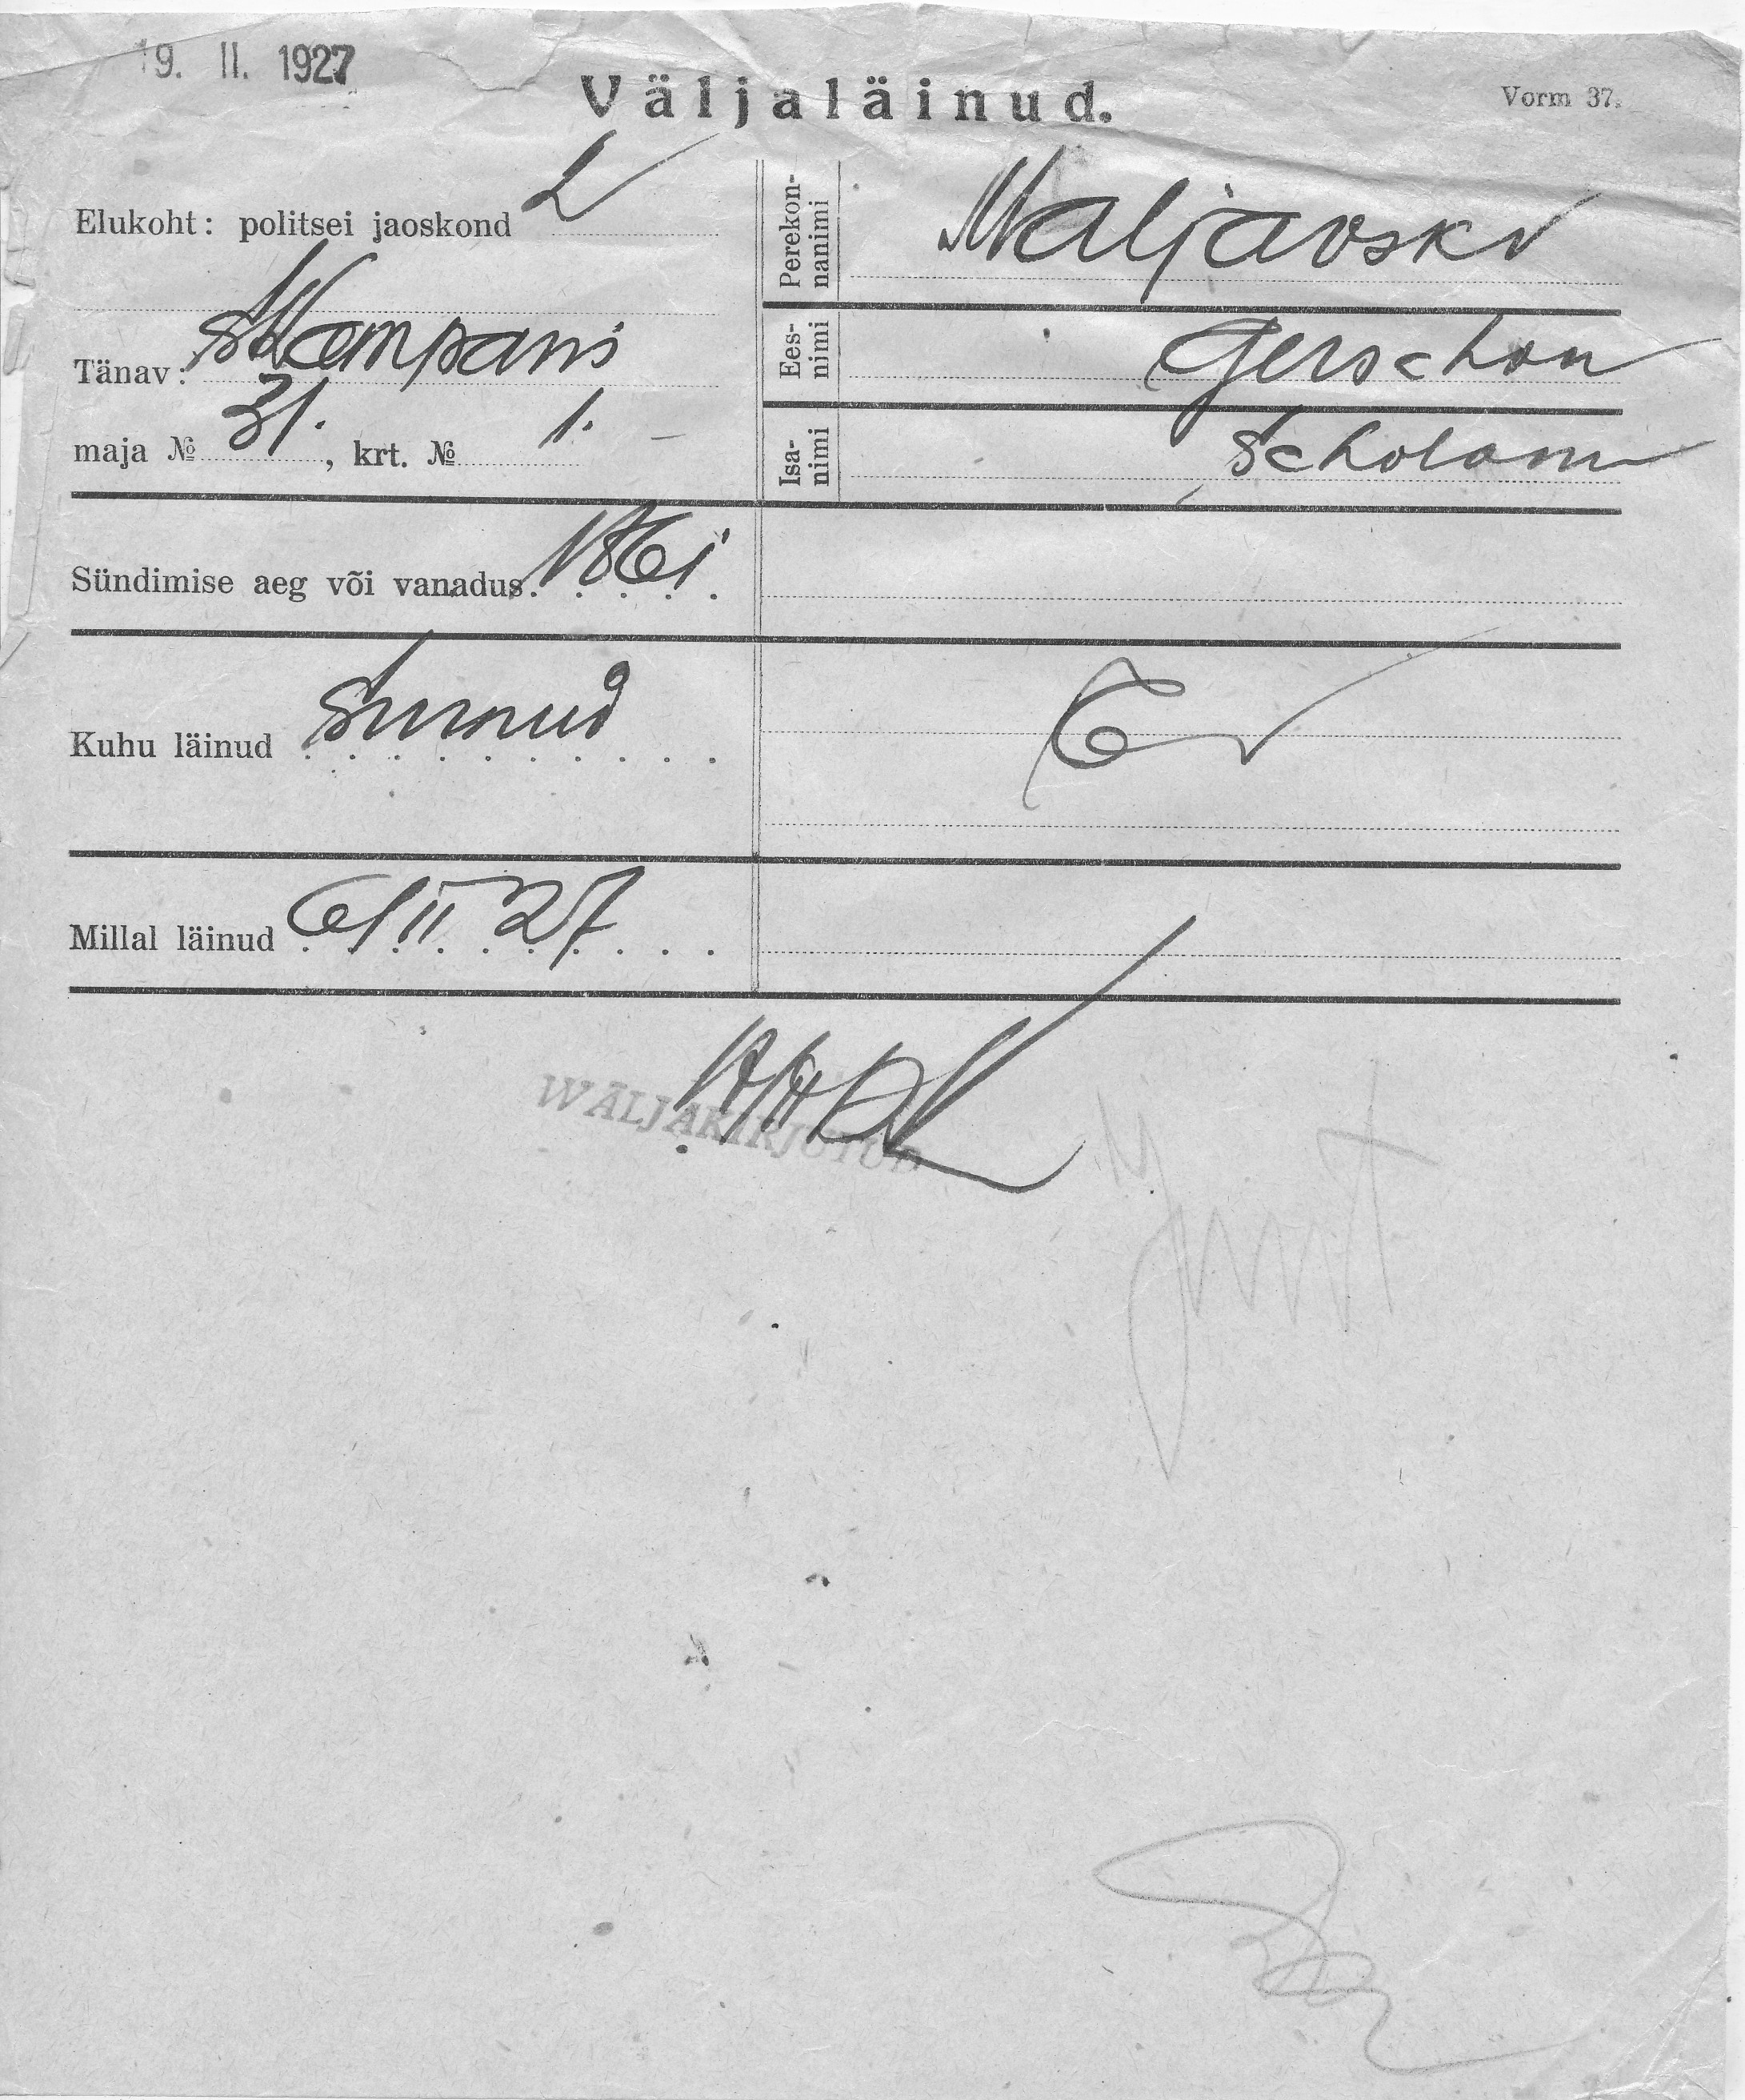 19. II. 1927
Väljaläinud.
Vorm 37.
Elukoht: politsei jaoskond 2
Tänav:
maja № 31. , krt. № 1.
Perekon-
nanimi
Maljavski
Ees-
nimi
Gerschon
Isa-
nimi
Scholom
Sündimise aeg või vanadus 1861
Kuhu läinud Surnud
Millal läinud 6/II 27
WÄLJAKIRJUTUD